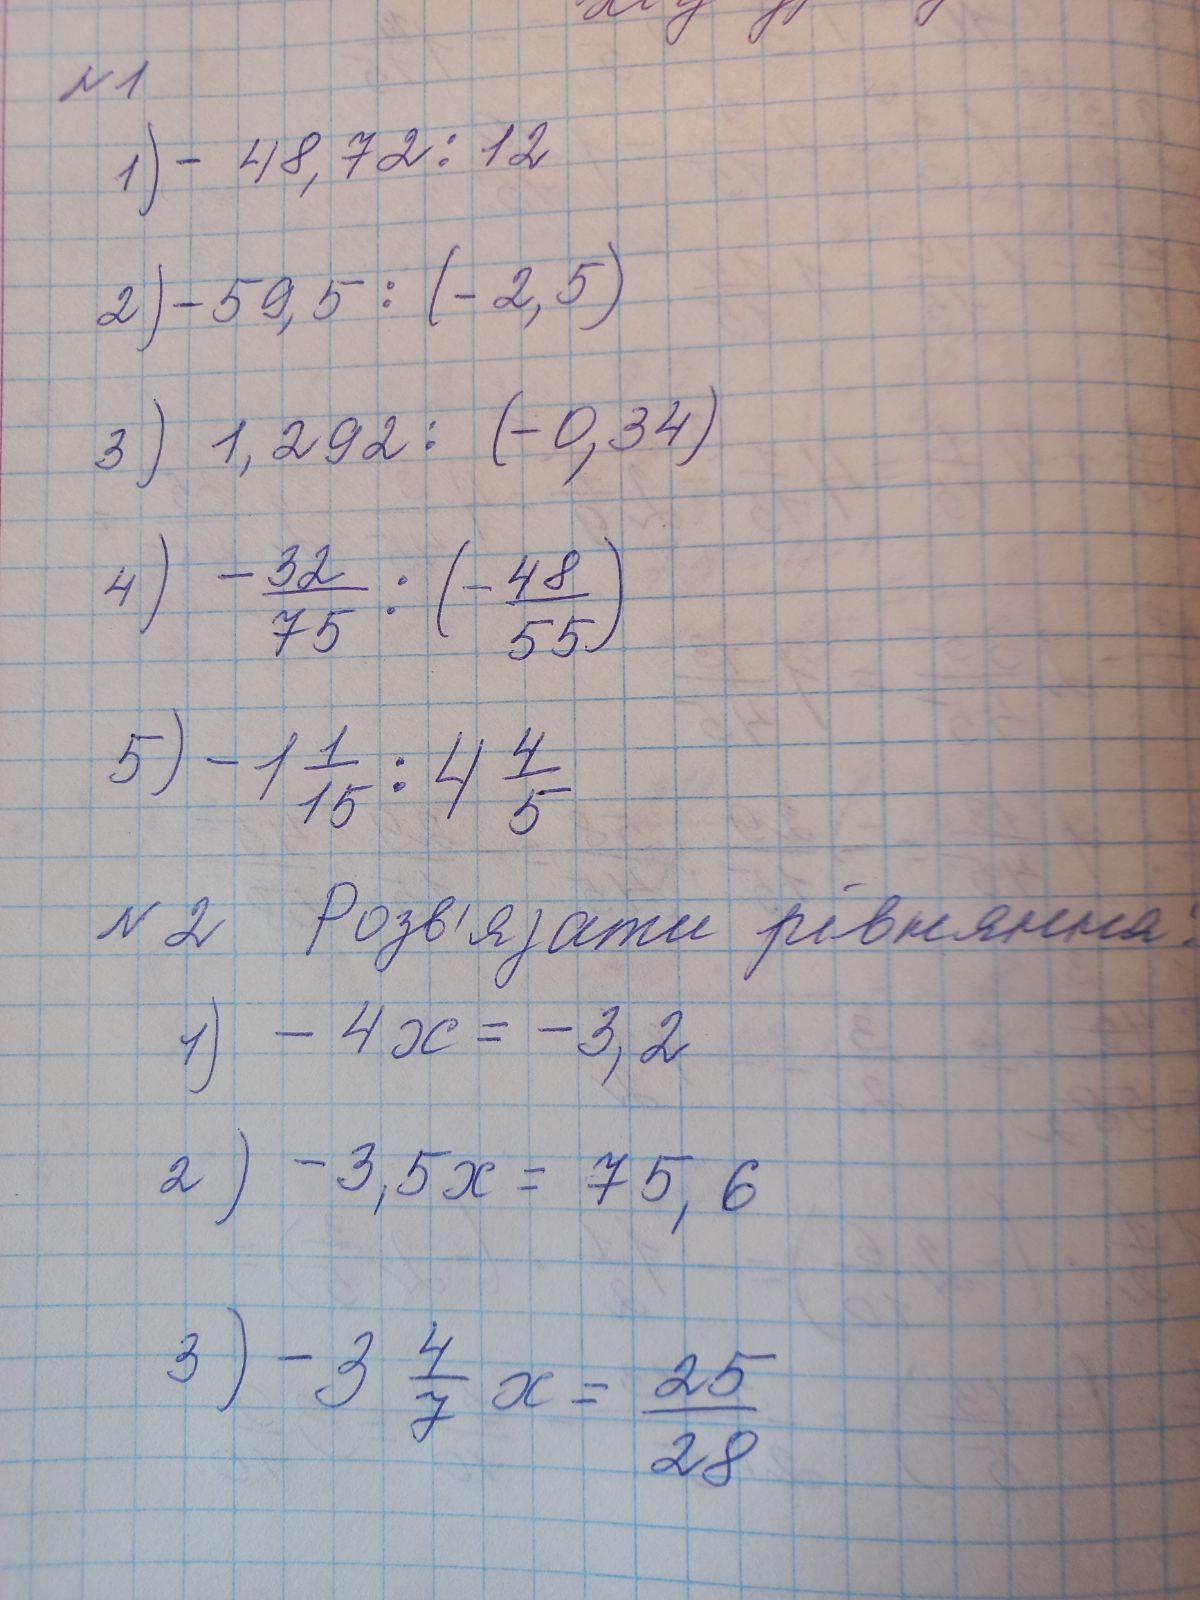 №1
1) - 48,72 : 12
2) - 59,5 : (- 2,5)
3) 1,292 : (- 0,34)
4) - 32/75 : (- 48/55)
5) - 1 1/15 : 4 4/5
№2 Розв'язати рівняння:
1) - 4x = - 3,2
2) - 3,5x = 75,6
3) - 3 4/7 x = 25/28